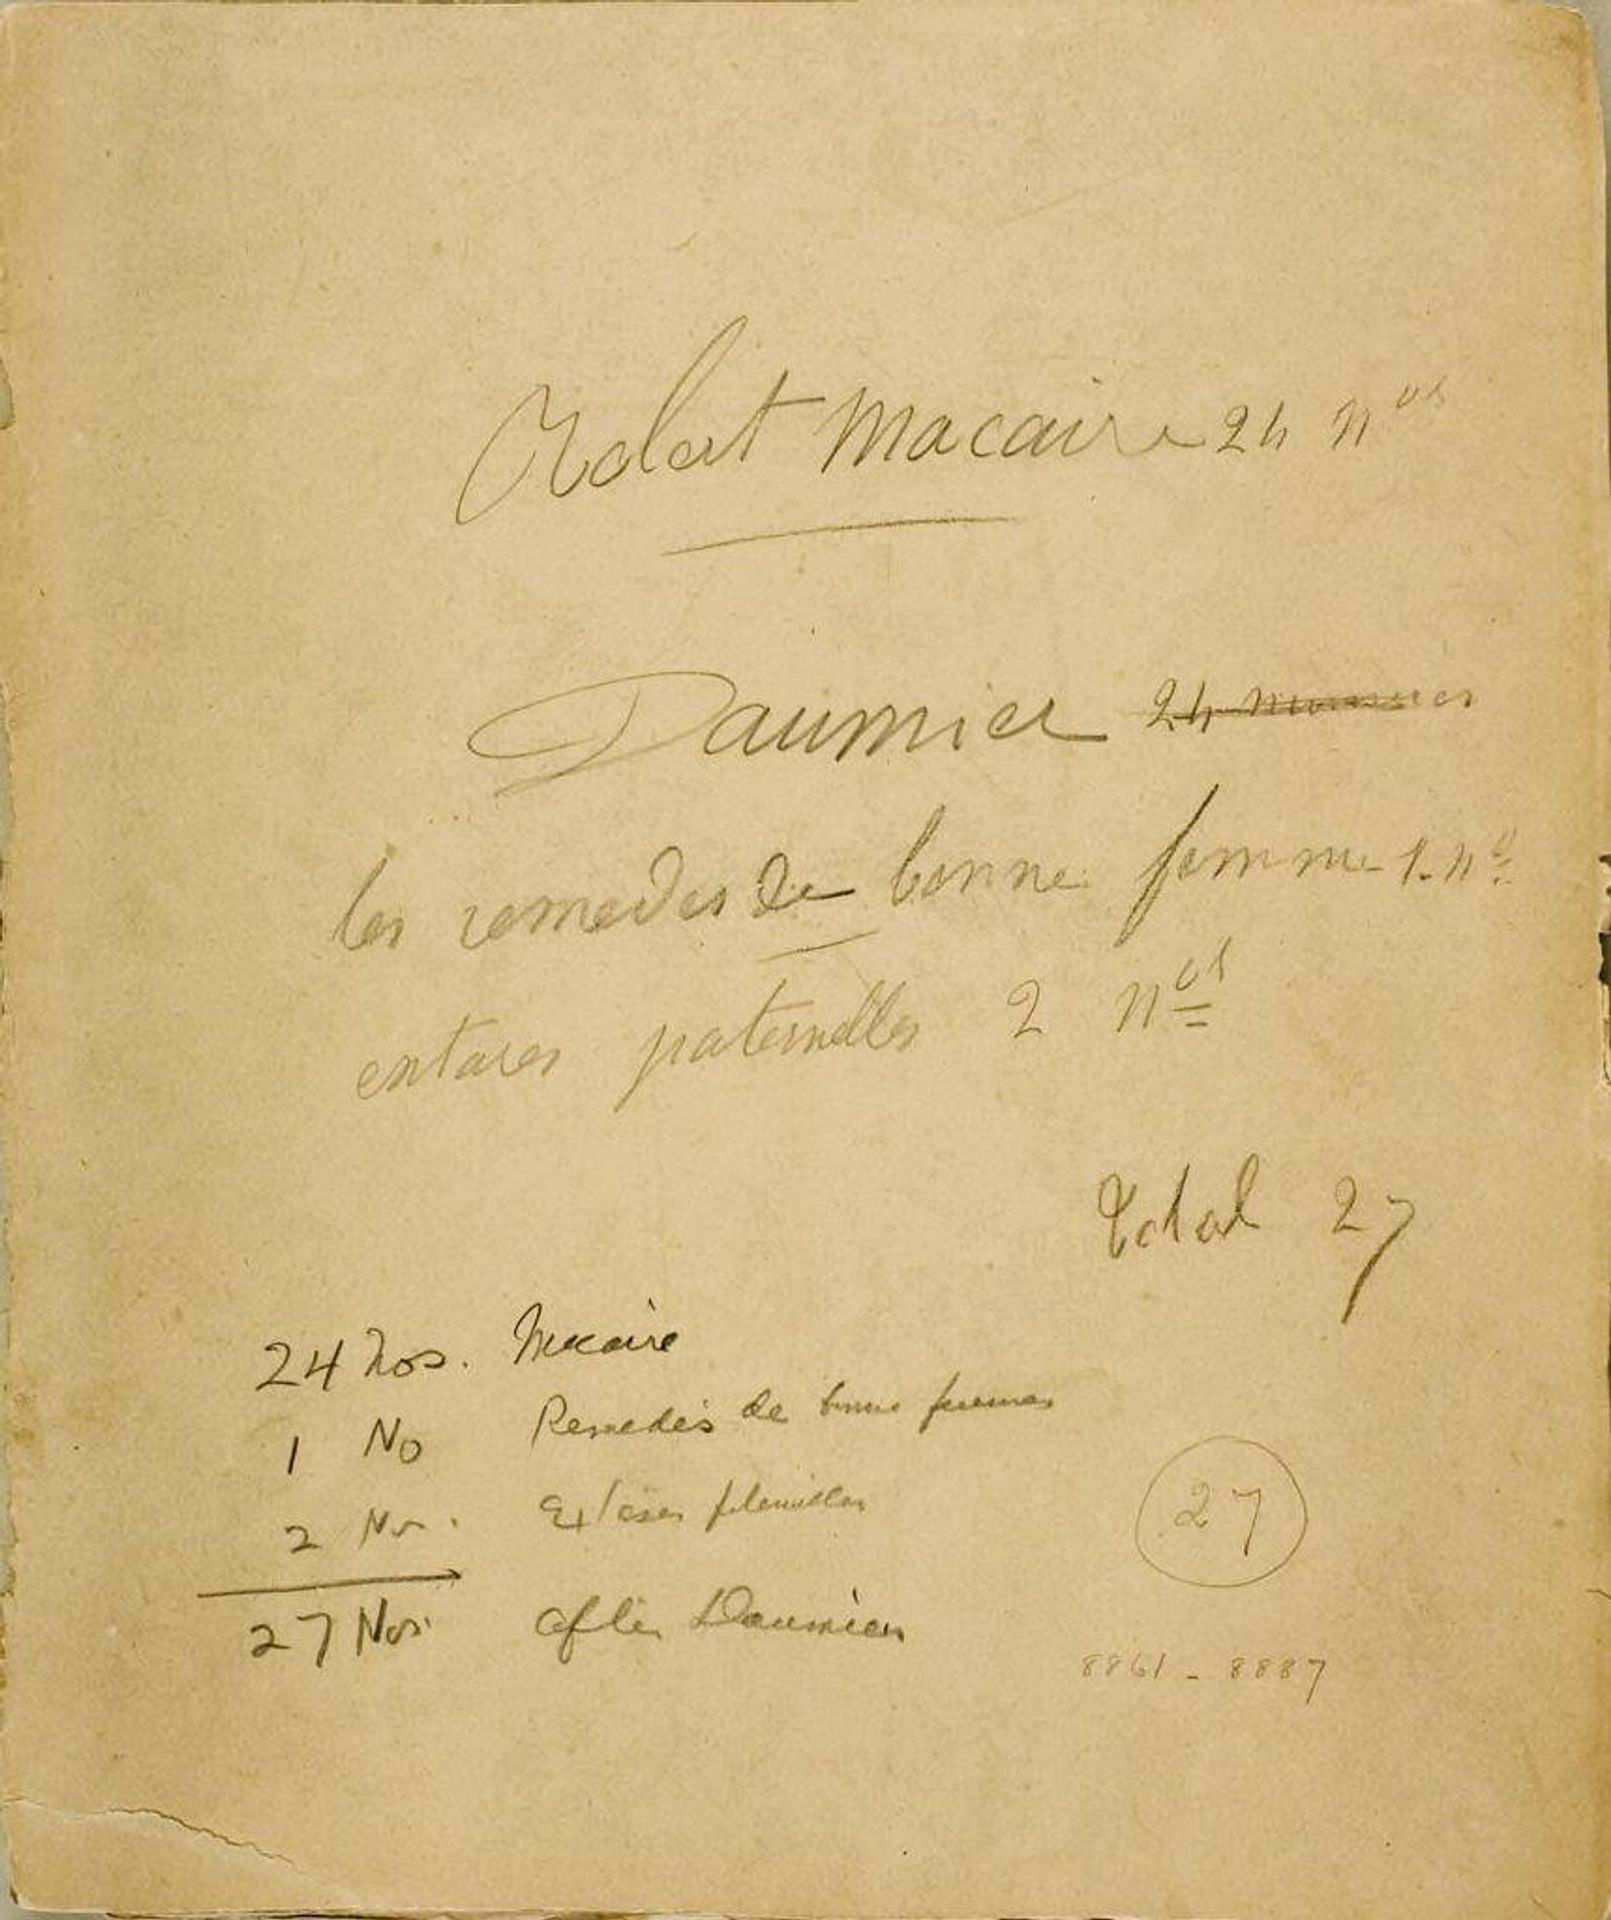 Robert Macaire 24 nos
Daumier 24
les remedes de bonne femme 1. no
extases paternelles 2 nos
Total 27
24 Nos. Macaire
1 No Remedes de bonne femmes
2 Nos. Extases
27 Nos. after Daumier
27
8861 - 8887